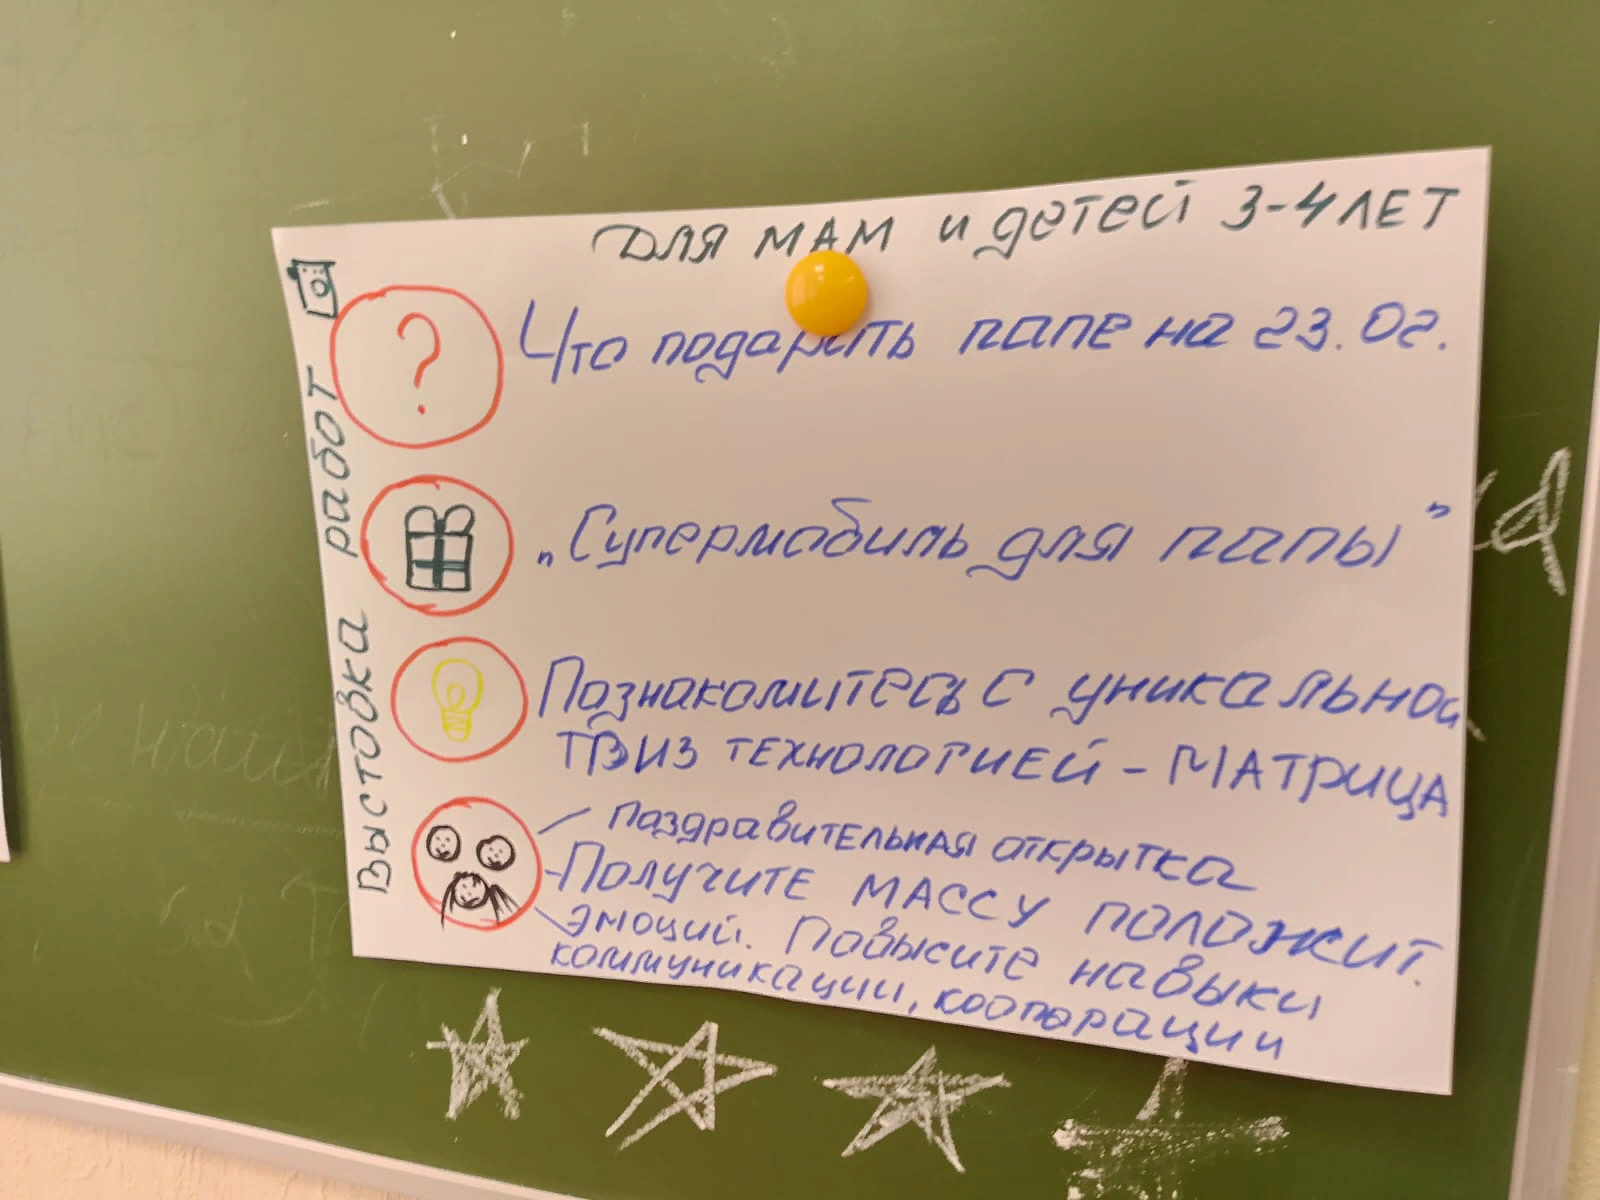 ДЛЯ МАМ и детей 3-4 ЛЕТ
Что подарить папе на 23.02.
„Супермобиль для папы”
Познакомитесь с уникальной
ТРИЗ ТЕХНОЛОГИЕЙ - МАТРИЦА
Поздравительная открытка
- Получите МАССУ положит.
эмоций. Повысите навыки
коммуникации, кооперации
Выстовка работ